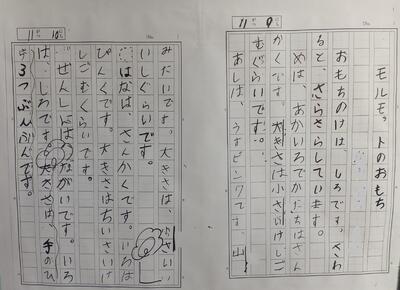 11がつ9にち
モルモットのおもち
おもちのけは、しろです。さわ
ると、さらさらしています。
めは、あかいろでかたちはさん
かくです。大きさは小さいけしご
むぐらいです。
あしは、うすピンクです。山
11がつ10にち
みたいです。大きさは、小さい
いしぐらいです。
はなは、さんかくです。いろは
ぴんくです。大きさはちいさいけ
しごむくらいです。
ぜんしんは ながいです。いろ
は、しろです。大きさは、手のひ
ら3つぶんぶんです。